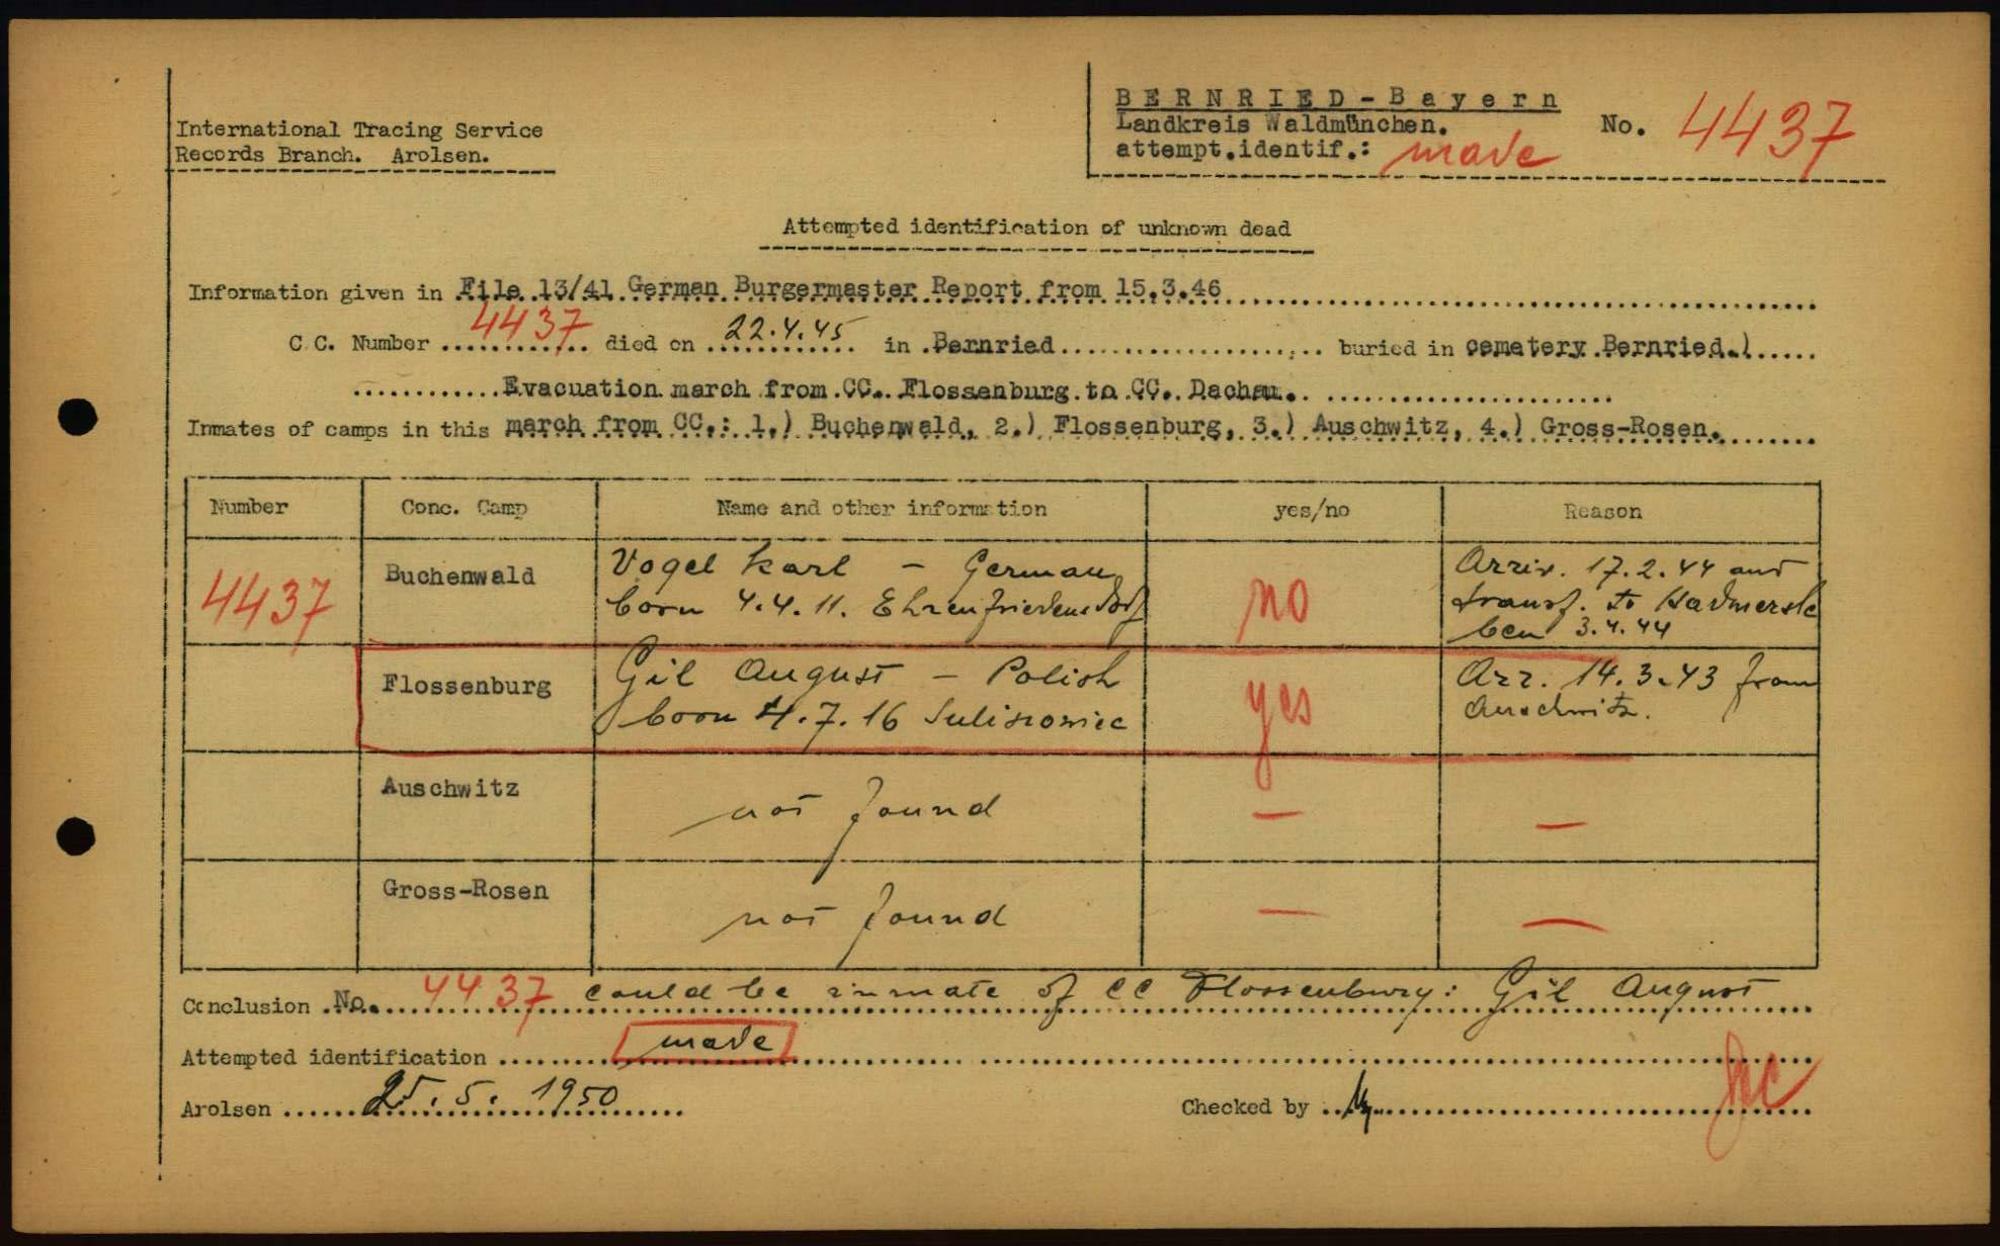 International Tracing Service
Records Branch. Arolsen.
BERNRIED - Bayern
Landkreis Waldmünchen.
attempt.identif.: made
No. 4437
Attempted identification of unknown dead
Information given in File 13/41 German Burgermaster Report from 15.3.46
C.C. Number 4437 died on 22.4.45 in Bernried buried in cemetery Bernried.)
Evacuation march from CC. Flossenburg to CC. Dachau.
Inmates of camps in this march from CC.: 1.) Buchenwald, 2.) Flossenburg, 3.) Auschwitz, 4.) Gross-Rosen.
Number Conc. Camp Name and other information yes/no Reason
4437 Buchenwald
Vogel Karl - German
born 4.4.11. Ehrenfriedensdorf
no
Arriv. 17.2.44 and
transf. to Hadmersle
ben 3.4.44
Flossenburg
Gil August - Polish
born 4.7.16
yes
Arr. 14.3.43 from
Auschwitz.
Auschwitz not found — —
Gross-Rosen not found — —
Conclusion No. 4437 could be inmate of CC Flossenburg: Gil August
Attempted identification made
Arolsen 25.5.1950
Checked by